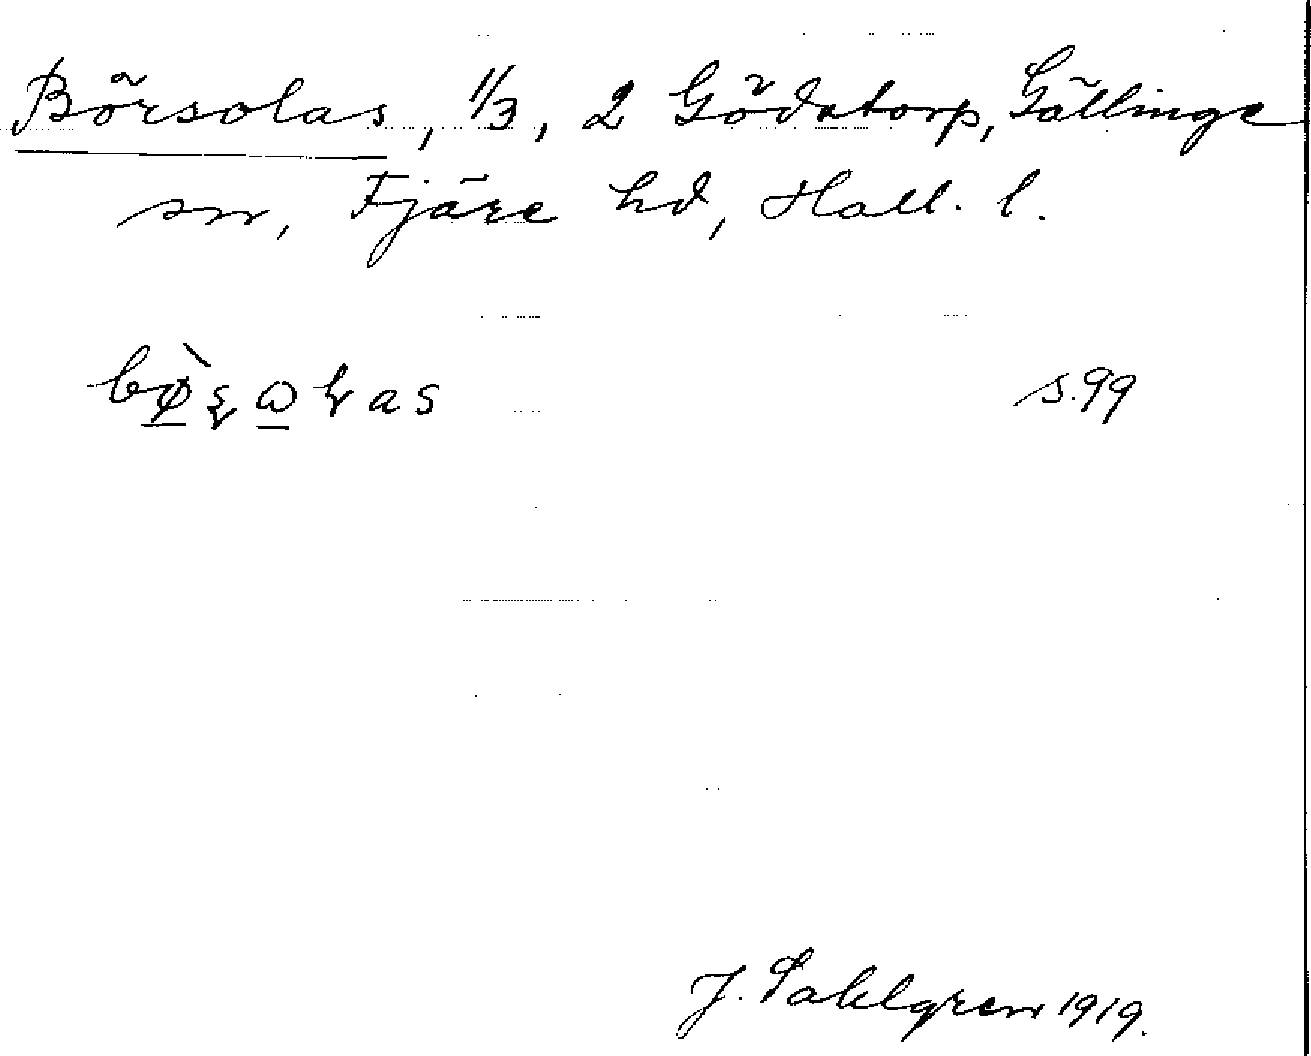 Börsolas, 1/3, 2 Gödatorp, Gällinge
sn, Fjäre hd, Hall. l.
s. 99
J. Sahlgren 1919.